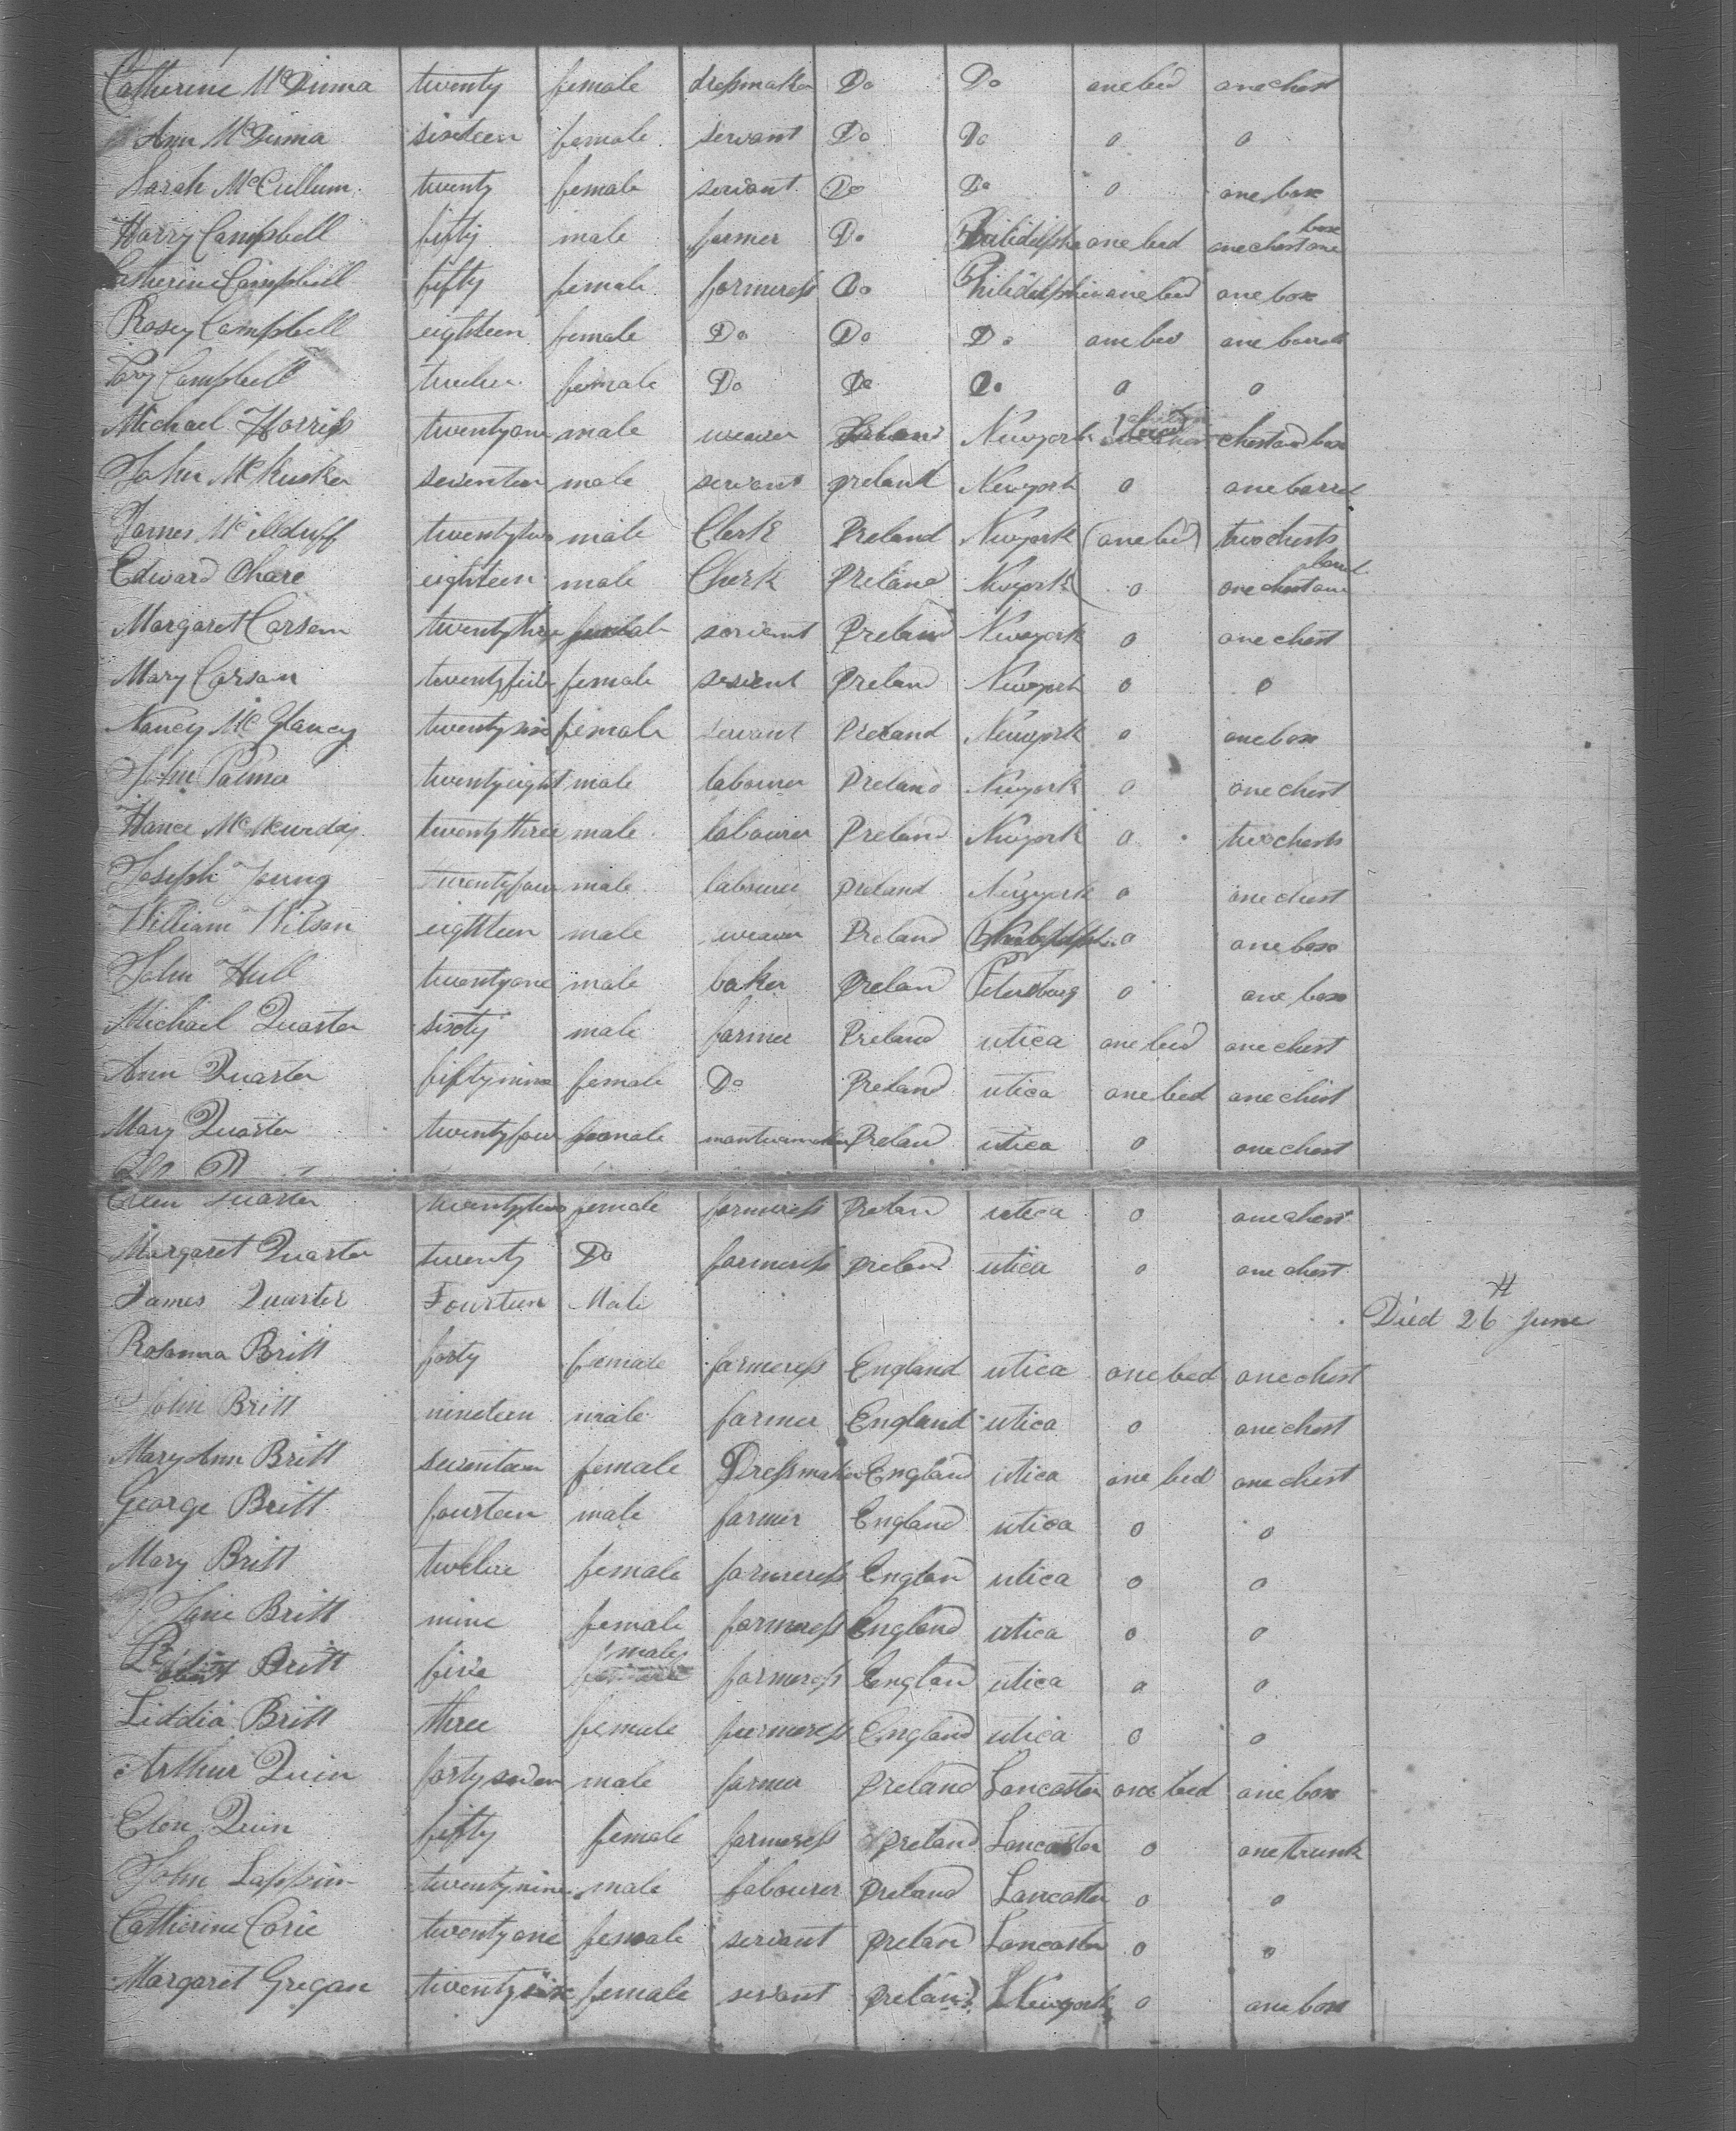 Catherine McDuma twenty female dressmaker Do Do one bed one chest
Ann McDuma sixteen female servant Do Do o o
Sarah McCullum twenty female servant Do Do o one box
Harry Campbell fifty male farmer Do Philidelphia one bed one chest one box
Catherine Campbell fifty female farmeress Do Philidelphia one bed one box
Rosey Campbell eighteen female Do Do Do one bed one barrell
Campbell twelve female Do Do Do o o
Michael Horriss twentyone male weaver Ireland Newyork chest and box
John McKusker seventen male servant Ireland Newyork o one barrel
James McIlduff twentytwo male Clerk Ireland Newyork (one bed) two chests
Edward Ohare eighteen male Clerk Ireland Newyork o one chest one barrel
Margaret Carson twentythree female servant Ireland Newyork o one chest
Mary Carson twentyfive female servent Ireland Newyork o o
Nancy McGlancy twentysix female servant Ireland Newyork o one box
John Palmer twentyeight male labourer Ireland Newyork o one chest
Hance McMurday twentythree male labourer Ireland Newyork o two chests
Joseph Young twentyfour male labourer Ireland Newyork o one chest
William Wilson eighteen male weaver Ireland o one box
John Hull twentyone male baker Ireland Petersburg o one box
Michael Quarter sixty male farmer Ireland utica one bed one chest
Ann Quarter fiftynine female Do Ireland utica one bed one chest
Mary Quarter twentyfour female mantuamaker Ireland utica o one chest
Ellen Quarter twentytwo female farmeress Ireland utica o one chest
Margaret Quarter twenty Do farmeress Ireland utica o one chest
James Quarter Fourteen Male Died 26 th June
Rosanna Britt forty female farmeress England utica one bed one chest
John Britt nineteen male farmer England utica o one chest
Mary Ann Britt seventeen female Dressmaker England utica one bed one chest
George Britt fourteen male farmer England utica o o
Mary Britt twelve female farmeress England utica o o
Jane Britt nine female farmeress England utica o o
Britt five male farmeress England utica o o
Liddia Britt three female farmeress England utica o o
Arthur Quin fortyseven male farmer Ireland Lancaster one bed one box
Elen Quin fifty female farmeress Ireland Lancaster o one trunk
John Lappin twentynine male labourer Ireland Lancaster o o
Catherine Corie twentyone female servant Ireland Lancaster o o
Margaret Gregan twentysix female servant Ireland Newyork o one box